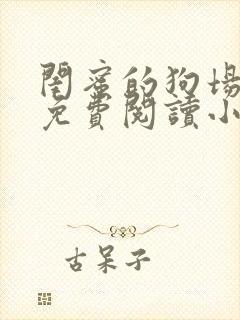 閨蜜的狗場
免費閱讀小
古呆子